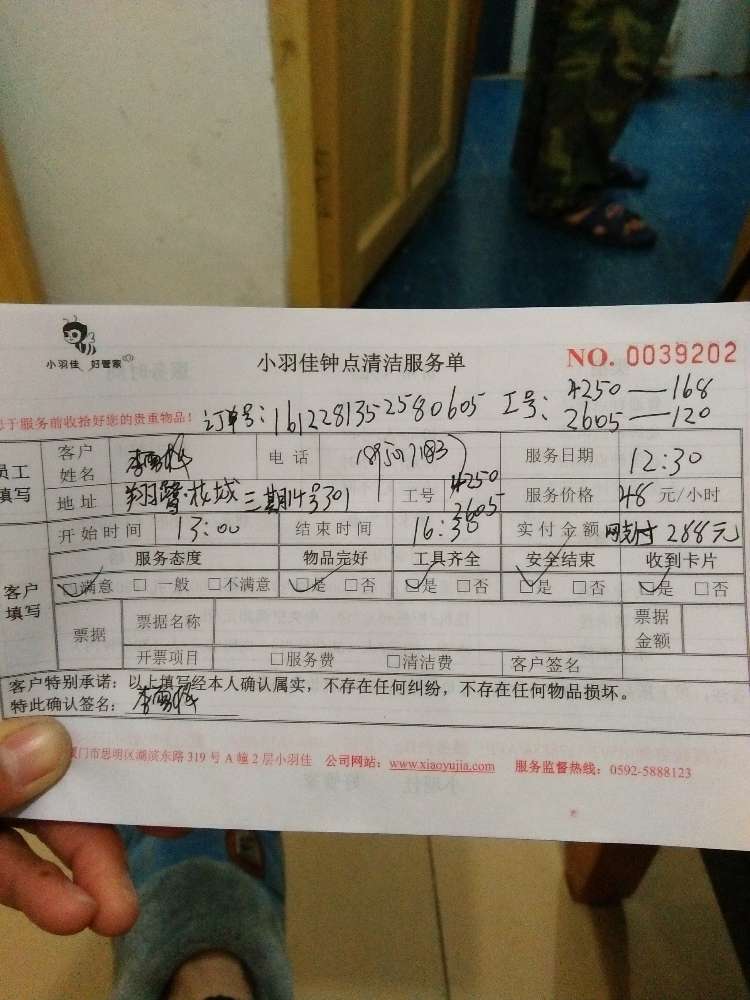 小羽佳 好管家
小羽佳钟点清洁服务单
NO. 0039202
于服务前收拾好您的贵重物品!
订单号:1612281352580605 工号: 4250—168
2605—120
员工填写 客户姓名 电话 服务日期 12:30
地址 翔鹭花城三期14号301 工号 4250 2605 服务价格 48 元/小时
客户填写 开始时间 13:00 结束时间 16:38 实付金额 网支付 288元
服务态度 物品完好 工具齐全 安全结束 收到卡片
☑满意 □ 一般 □不满意 ☑是 □否 ☑是 □否 ☑是 □否 ☑是 □否
票据 票据名称 票据金额
开票项目 □服务费 □清洁费 客户签名
客户特别承诺:以上填写经本人确认属实,不存在任何纠纷,不存在任何物品损坏。
特此确认签名:
厦门市思明区湖滨东路 319 号 A 幢 2 层小羽佳 公司网站:www.xiaoyujia.com 服务监督热线:0592-5888123